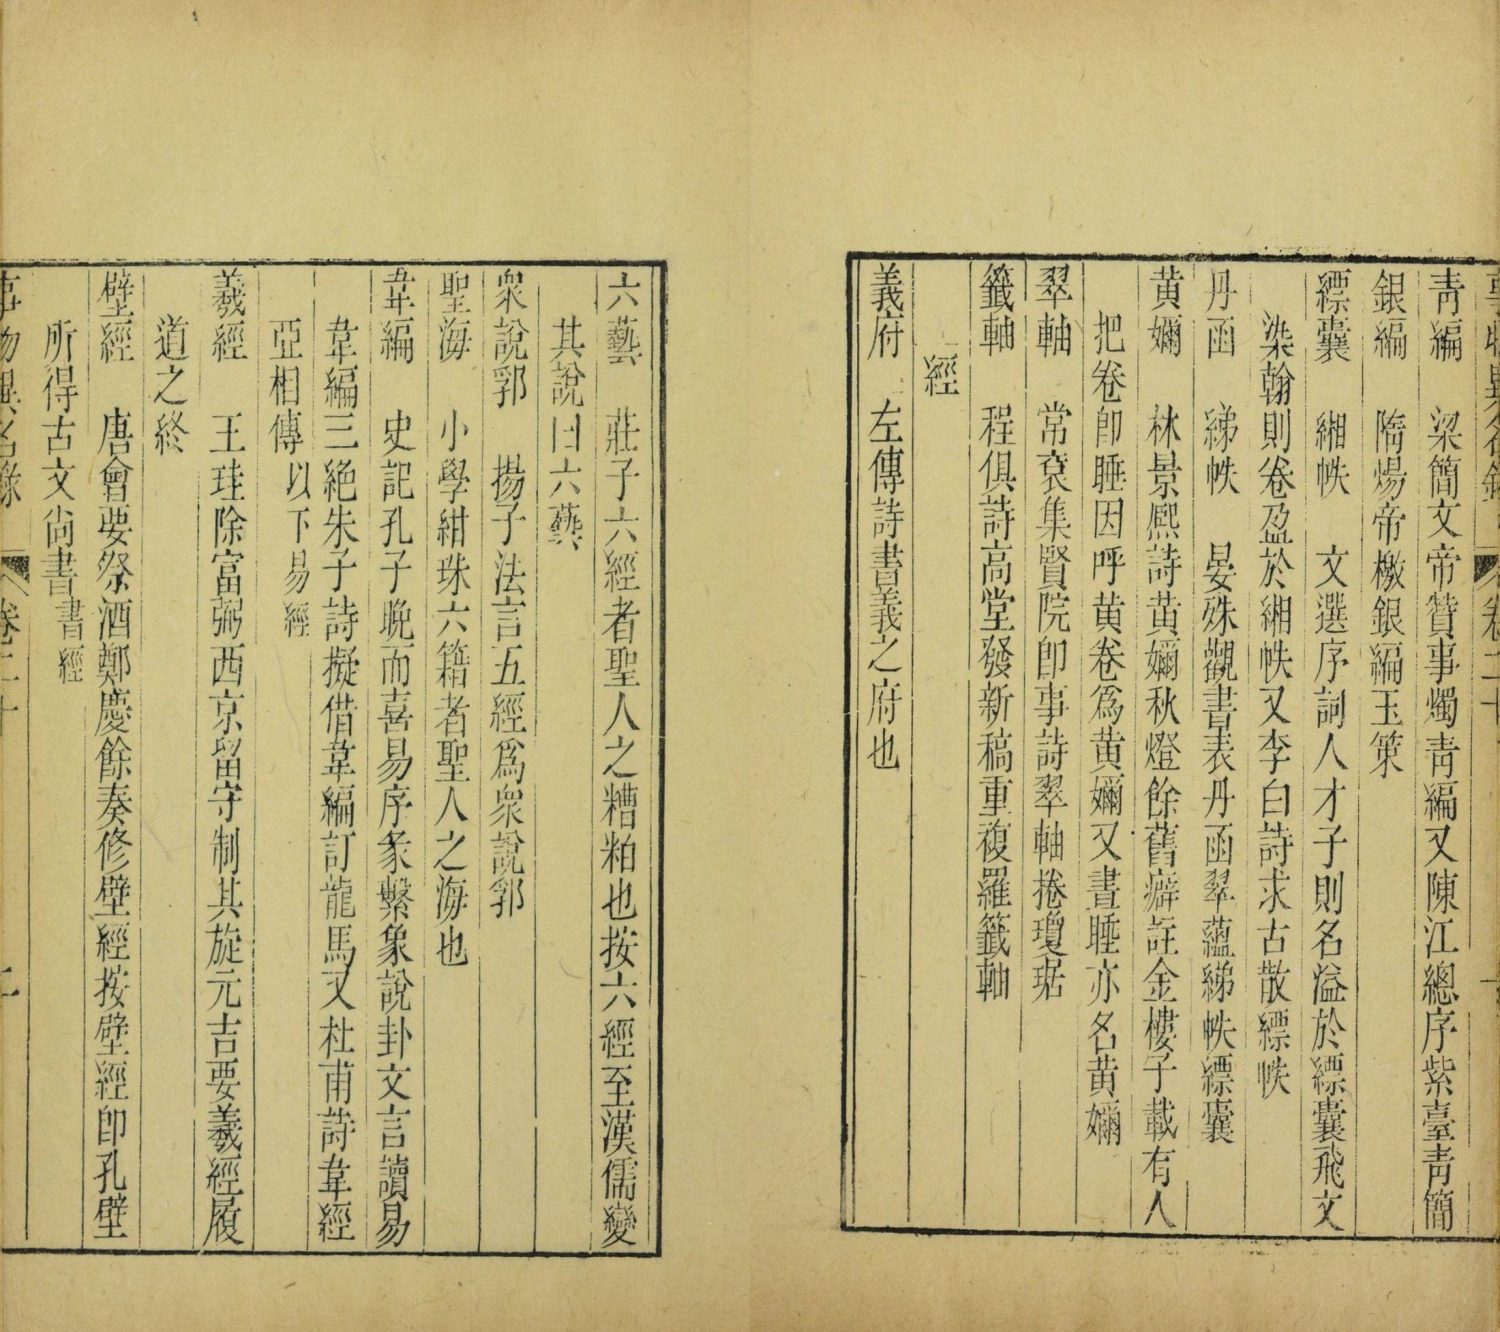 事物異名錄 卷二十
青編 梁簡文帝贊事燭青編又陳江總序紫臺青簡
銀編 隋煬帝檄銀編玉策
縹囊 緗帙 文選序詞人才子則名溢於縹囊飛文
染翰則卷盈於緗帙又李白詩求古散縹帙
丹函 綈帙 晏殊觀書表丹函翠蘊綈帙縹囊
黃嬭 林景熈詩黃嬭秋燈餘舊癖註金樓子載有人
把卷卽睡因呼黃卷爲黃嬭又晝睡亦名黃嬭
翠軸 常袞集賢院卽事詩翠軸捲瓊琚
籤軸 程俱詩高堂發新稿重複羅籤軸
經
義府 左傳詩書義之府也
六藝 莊子六經者聖人之糟粕也按六經至漢儒變
其說曰六藝
衆說郛 揚子法言五經爲衆說郛
聖海 小學紺珠六籍者聖人之海也
韋編 史記孔子晚而喜易序彖繫象說卦文言讀易
韋編三絕朱子詩擬借韋編訂龍馬又杜甫詩韋經
亞相傳 以下易經
羲經 王珪除富弼西京留守制其旋元吉要羲經履
道之終
壁經 唐會要祭酒鄭慶餘奏修壁經按壁經卽孔壁
所得古文尚書 書經
事物異名錄 卷二十